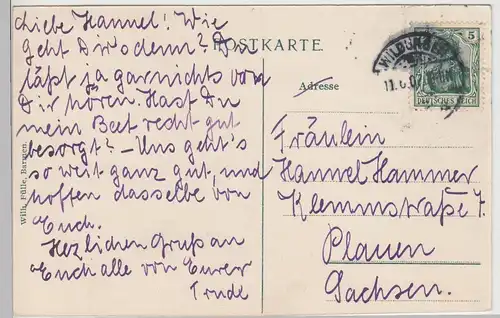 Liebe Hannel! Wie
geht Dir's denn? Du
läßt ja garnichts von
Dir hören. Hast Du
mein Beet recht gut
besorgt? – Uns geht's
so weit ganz gut, und
hoffen dasselbe von
Euch.
Herzlichen Gruß an
Euch alle von Eurer
Trude
Wilh. Fülle, Barmen.
POSTKARTE
Adresse
5
DEUTSCHES REICH
Fräulein
Hannel Hammer
Klemmstraße 7.
Plauen
Sachsen.